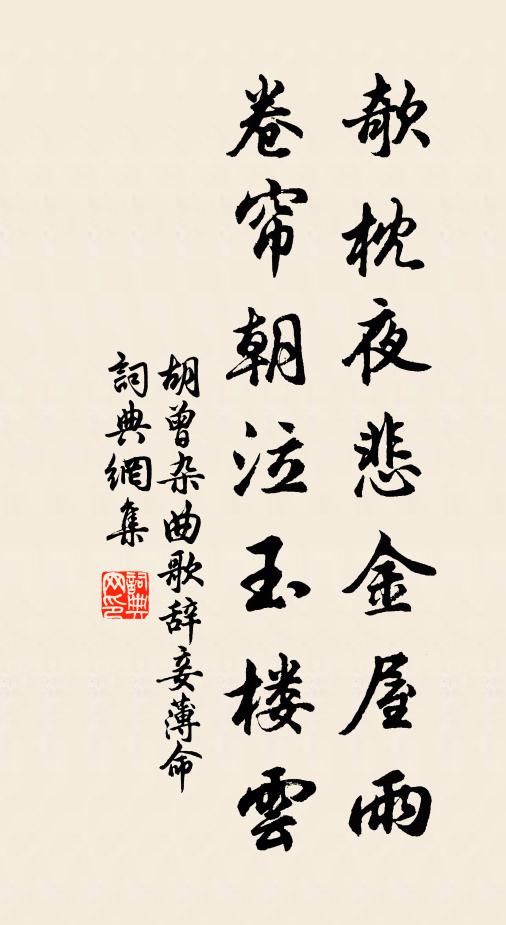 欹枕夜悲金屋雨
卷帘朝泣玉楼雲
胡曾杂曲歌辞妾薄命
詞典網集
詞典網印